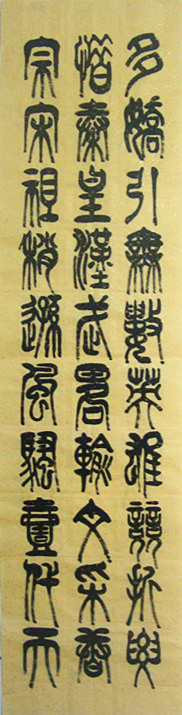 多嬌引無數英雄競折腰
惜秦皇漢武畧輸文采唐
宗宋祖稍遜風騷壹代天